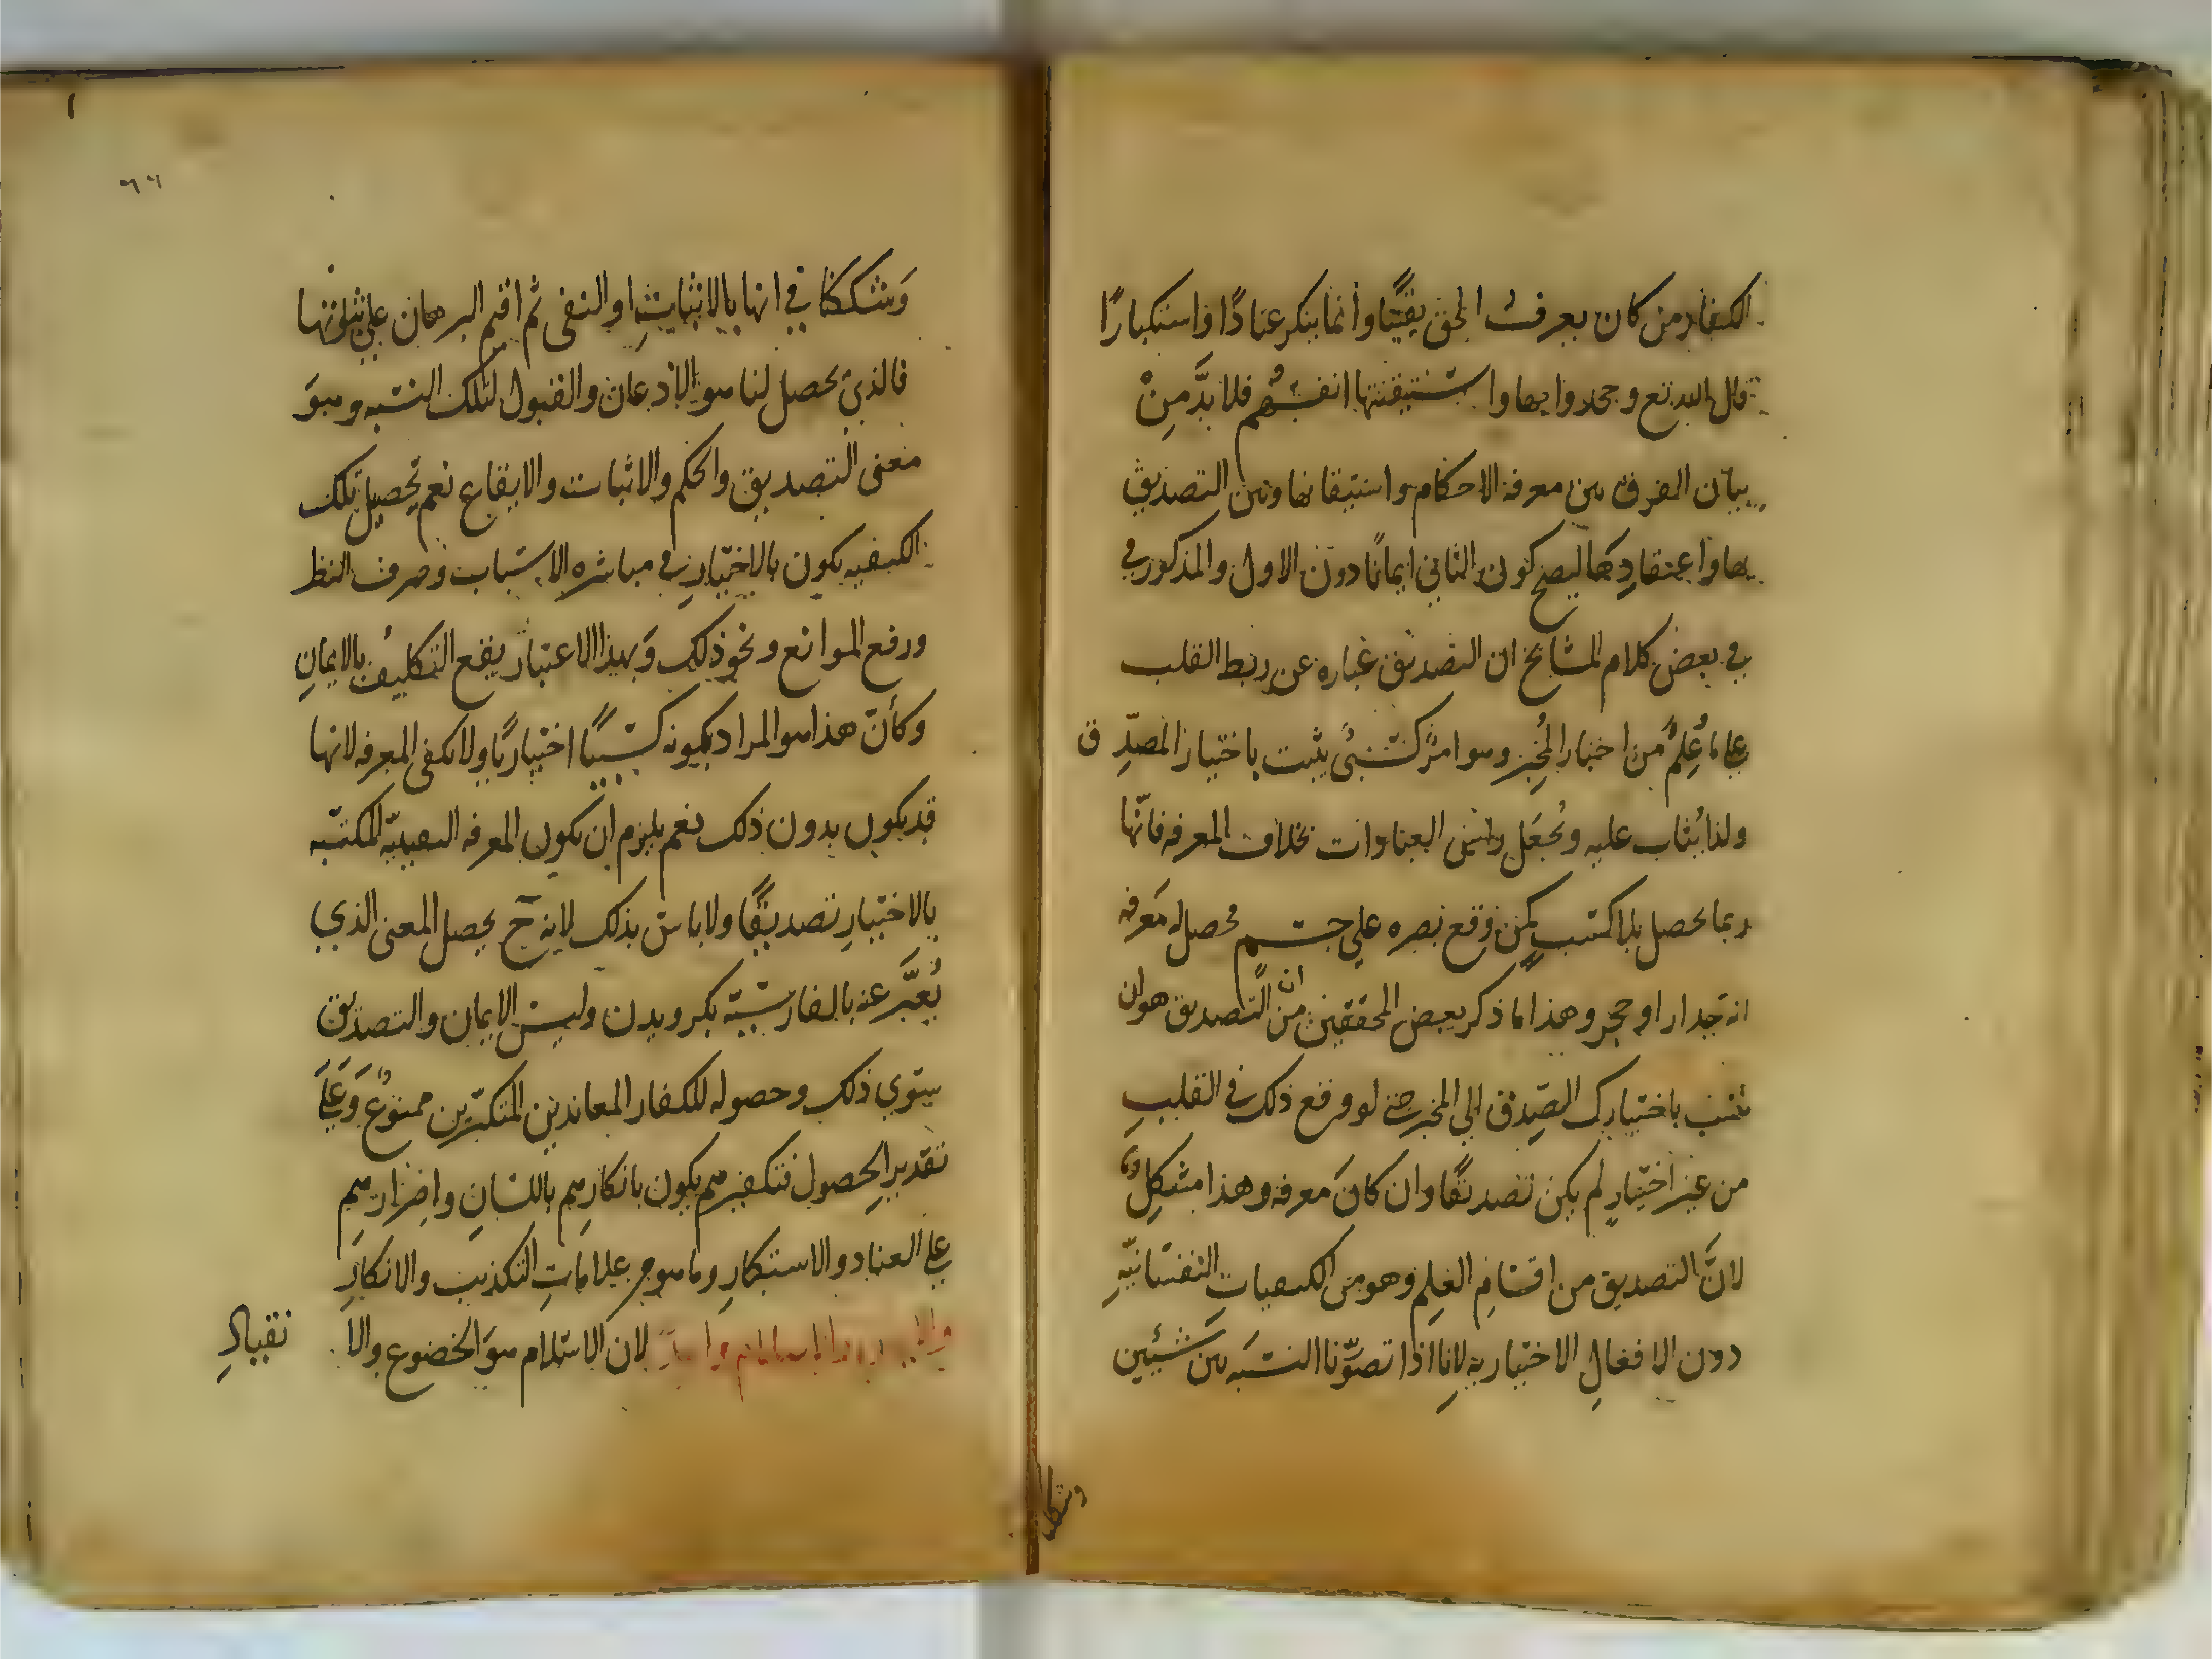 الكفار من كان يعرف الحق يقينًا وانما ينكر عنادًا واستكبارًا
قال الله تع وجحدوا بها واستيقنتها انفسُهم فلا بدَّ مِنْ
بيان الفرق بين معرفه الاحكام واستيقانها وبين التصديق
بها واعتقادِها ليصح كون الثاني ايمانًا دون الاول والمذكور في
في بعض كلام المشايخ ان التصديق عباره عن ربط القلب
على ما عُلِم من اخبار المخبِر وهو امرٌ كسبيٌ يثبت باختيار المصدِّق
ولذا يُثاب عليه ويُجعَل راس العبادات بخلاف المعرفه فانّها
ربما يحصل بلا كسب كمن وقع بصره على جسم فحصل له معرفه
انه جدار او حجر وهذا ما ذكر بعض المحققين من ان التصديق هو ان
تنسب باختيارك الصِدق الى المخبر حتى لو وقع ذلك في القلبِ
من غير اختيارٍ لم يكن تصديقًا وان كانَ معرفه وهذا مشكِلٌ
لانَّ التصديق من اقسامِ العِلم وهو من الكيفياتِ النفسانيّهِ
دون الافعالِ الاختياريه لانا اذا تصوّرنا النسبَه بين شيئين
وشككنا
٦٦
وَشككنا في انها بالاثباتِ او النفى ثم اقيم البرهان على ثبوتها
فالذي يحصل لنا هو الاذعان والقبول لتلك النسبه وهوَ
معنى التصديق والحكم والاثبات والايقاع نعم تحصيل تلك
الكيفيه يكون بالاختيارِ في مباشره الاسباب وصرف النظر
ورفع الموانع ونحو ذلك وَبهذا الاعتبار يقع التكليفُ بالايمانِ
وكأنّ هذا هو المراد بكونه كسبيًا اختياريًا ولا يكفى المعرفه لانها
قد يكون بدون ذلك نعم يلزم ان يكون المعرفه اليقينيّه المكتسبه
بالاختيارِ تصديقًا ولا باس بذلك لانه ح يحصل المعنى الذي
يُعبَّر عنه بالفارسيّة بكرويدن وليس الايمان والتصديق
سوي ذلك وحصوله للكفار المعاندين المتكبّرين ممنوعٌ وَعَلى
تقديرِ الحصول فتكفيرهم يكون بانكارِهم باللسانِ واصرارهم
على العناد والاستكبارِ وما هو من علاماتِ التكذيب والانكارِ
والايمان والاسلام واحد لان الاسلام هوَ الخضوع والا نقيادِ